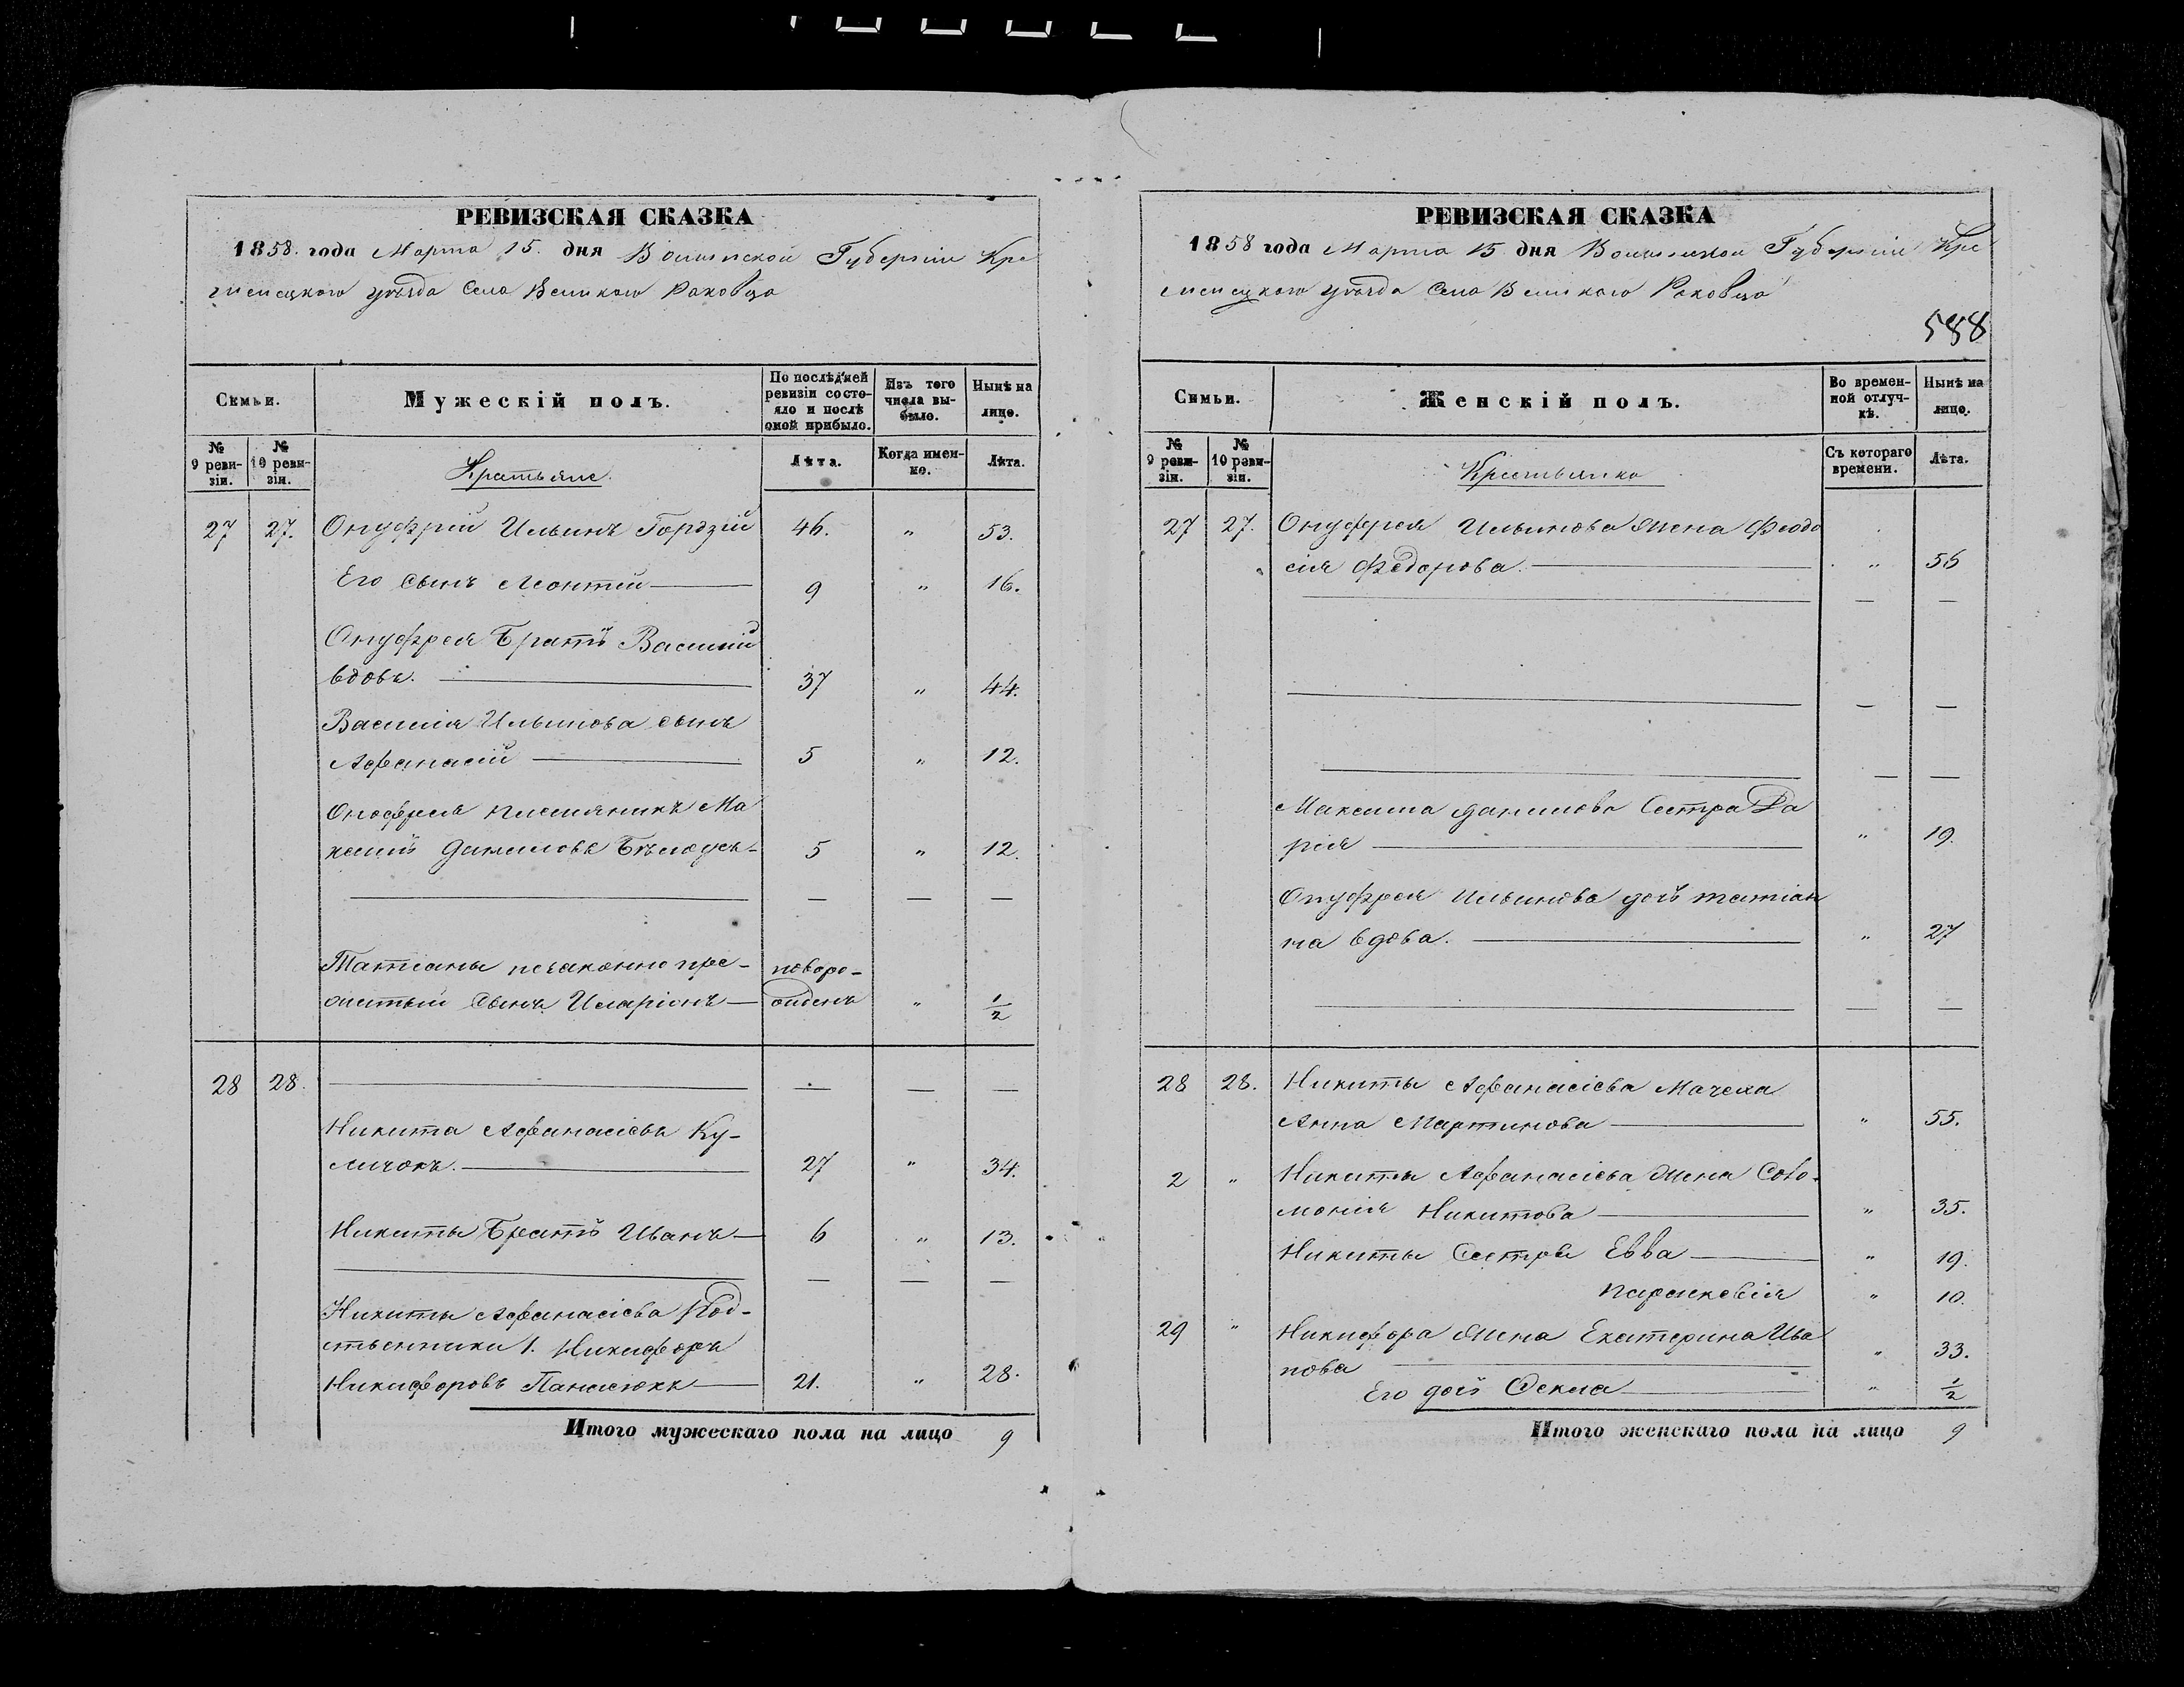 РЕВИЗСКАЯ СКАЗКА
1858. года Марта 15. дня Волынской Губерніи Кре
менецкого уѣзда Села Великого Раковца
Семьи.
Мужескій полъ.
По послѣдней ревизіи состояло и послѣ оной прибыло.
Изъ того числа выбыло.
Нынѣ на лицо.
№ 9 ревизіи.
№ 10 ревизіи.
Крестьяне.
Лѣта.
Когда именно.
Лѣта.
27 27. Онуфрій Ильинъ Гордзій 46. " 53.
Его сынъ Леонтій 9 " 16.
Онуфрея Братъ Василій
вдовъ. 37 " 44.
Василія Ильинова сынъ
Афанасій 5 " 12.
Онофрея племяникъ Ма
ксимъ Даниловъ 5 " 12.
— — —
Татіаны незаконно при- новоро-
житый сынъ Иларіонъ жденъ " 1/2
28 28. — — —
Никита Афанасіевъ Ку-
личокъ. 27 " 34.
Никиты Братъ Иванъ 6 " 13.
— — —
Никиты Афанасіева Род-
ственники 1. Никифоръ
Никифоровъ Панасюкъ 21. " 28.
Итого мужескаго пола на лицо 9
РЕВИЗСКАЯ СКАЗКА
1858 года Марта 15 дня Волынской Губерніи Кре
менецкого уѣзда Села Великого Раковца
588
Симьи.
Женскій полъ.
Во временной отлучкѣ.
Нынѣ на лицо.
№ 9 ревизіи.
№ 10 ревизіи.
Крестьянко
Съ котораго времени.
Лѣта.
27 27. Онуфрея Ильинова Жена Феодо
сія Федорова. " 56
— —
— —
— —
Максима Данилова Сестра Да
рія " 19.
Онуфрея Ильинова дочь татіан
на вдова. " 27
— —
28 28. Никиты Афанасіева Мачеха
Анна Мартинова " 55.
2 " Никиты Афанасіева Жена Соло-
монія Никитова " 35.
Никиты Сестры Евва " 19.
Парасковія " 10.
29 " Никифора Жена Екатерина Ива
нова " 33.
Его дочь Фекла " 1/2
Итого женскаго пола на лицо 9